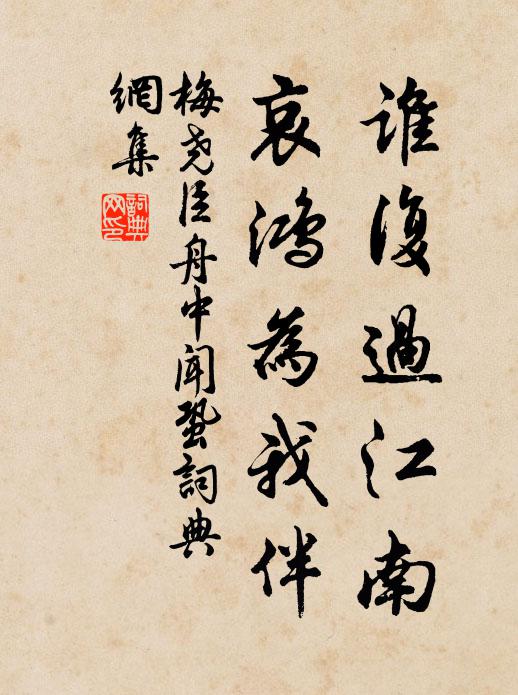 誰復過江南
哀鴻為我伴
梅堯臣舟中聞蛩詞典
網集
詞典
网印